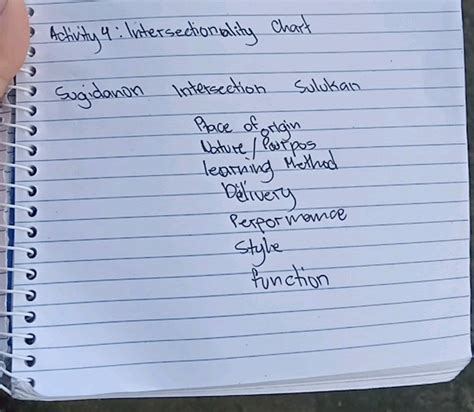 Activity 4: Intersectionality Chart
Sugidanon Intersection Sulukan
Place of origin
Nature / Pourpos
learning Method
Delivery
Performance
Style
function